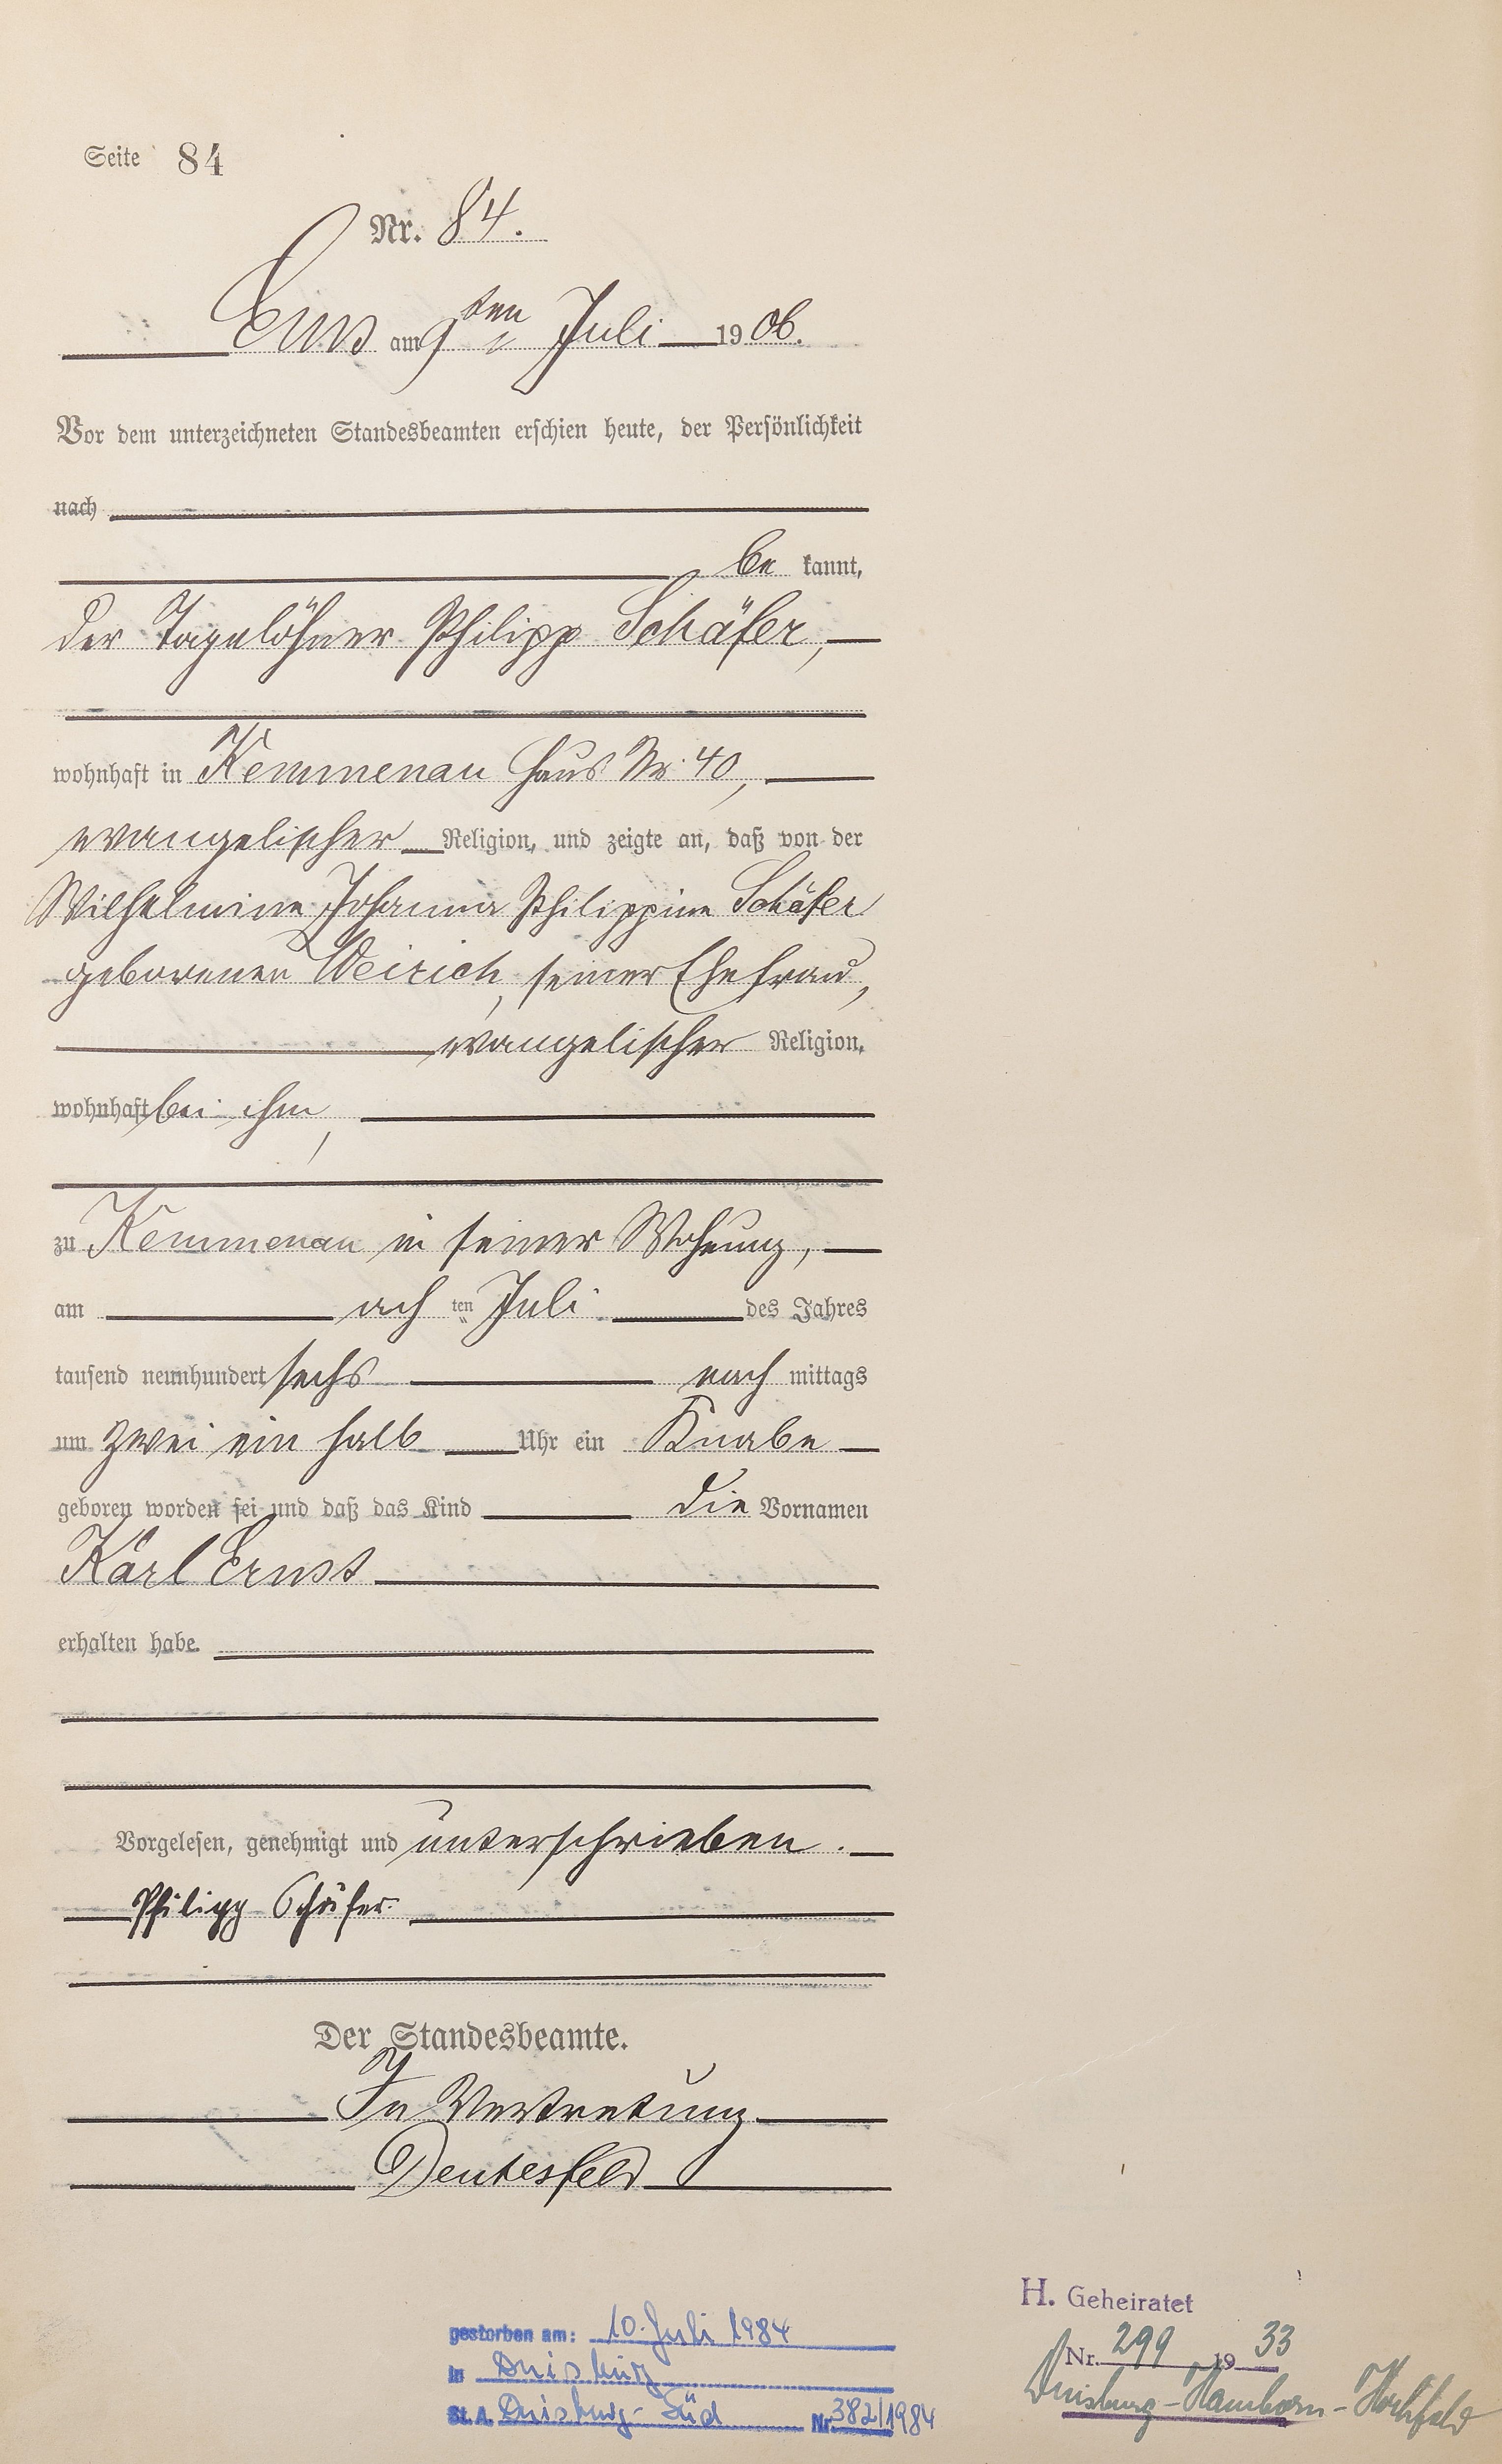 Seite 84
Nr. 84.
Ems am 9ten Juli 1906.
Vor dem unterzeichneten Standesbeamten erschien heute, der Persönlichkeit
nach
be kannt,
der Tagelöhner Philipp Schäfer,
wohnhaft in Kemmenau Haus Nr. 40,
evangelischer Religion, und zeigte an, daß von der
Wilhelmine Johanna Philippine Schäfer
geborenen Weirich, seiner Ehefrau,
evangelischer Religion,
wohnhaft bei ihm,
zu Kemmenau in seiner Wohnung,
am ach ten Juli des Jahres
tausend neunhundert sechs nach mittags
um zwei ein halb Uhr ein Knabe
geboren worden sei und daß das Kind die Vornamen
Karl Ernst
erhalten habe.
Vorgelesen, genehmigt und unterschrieben.
Philipp Schäfer
Der Standesbeamte.
In Vertretung
Deutesfeld
gestorben am: 10. Juli 1984
in Duisburg
St. A. Duisburg-Süd Nr. 382/1984
H. Geheiratet
Nr. 299 1933
Duisburg-Hamborn-Hochfeld